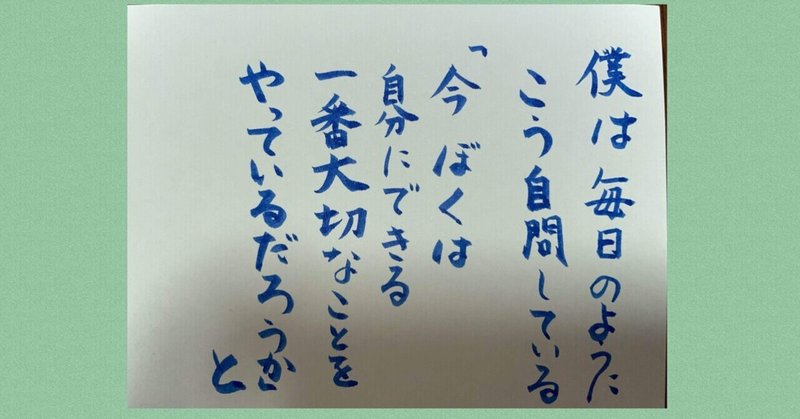 僕は毎日のように
こう自問している
「今ぼくは
自分にできる
一番大切なことを
やっているだろうか」
と